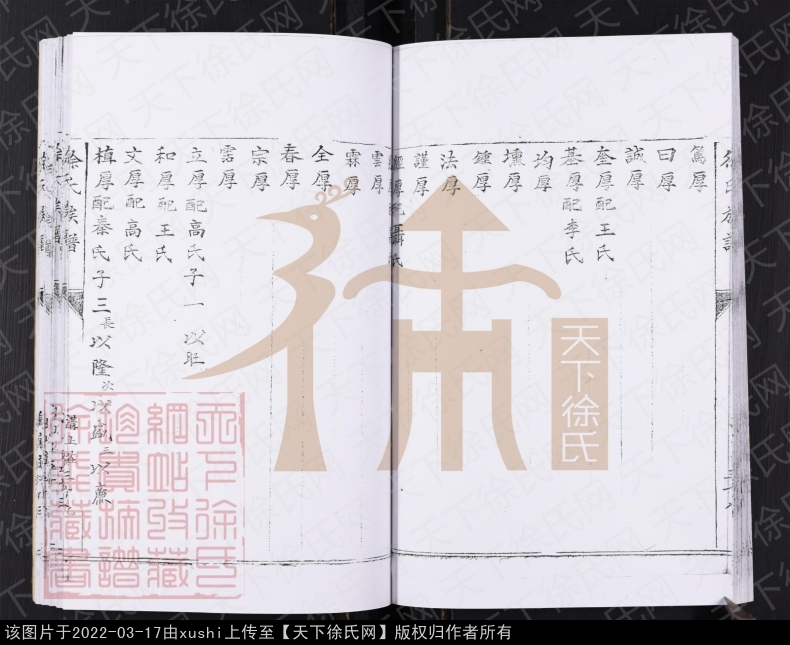 篤厚
曰厚
誠厚
奎厚配王氏
基厚配李氏
均厚
壎厚
鍾厚
法厚
謹厚
厚配聶氏
雲厚
霖厚
全厚
春厚
宗厚
雲厚
立厚配高氏子一 以旺
和厚配王氏
文厚配高氏
植厚配秦氏子三長以隆次以盛三以廉
徐氏族譜
天下徐氏
天下徐氏网
该图片于2022-03-17由xushi上传至【天下徐氏网】版权归作者所有